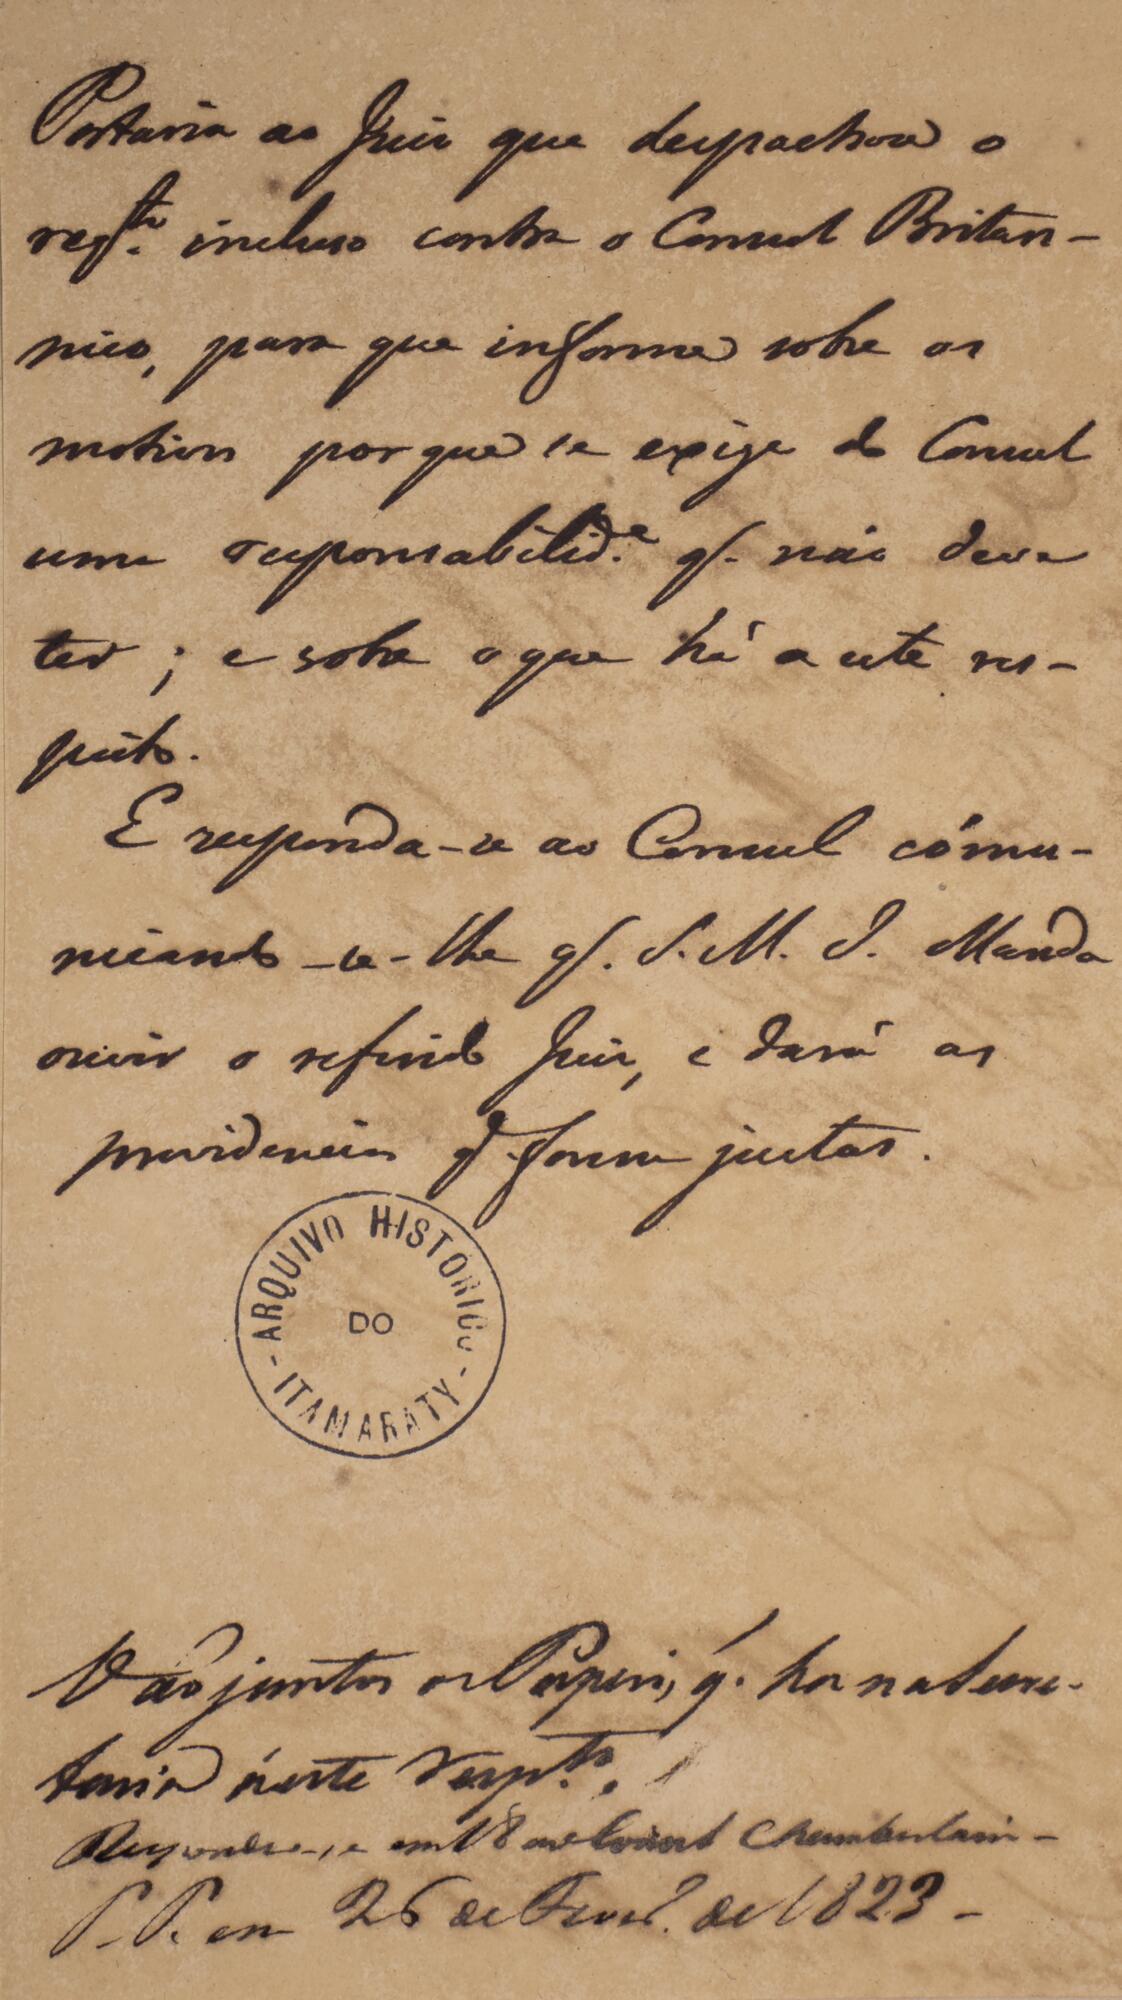 Portaria ao Juiz que despachou o
reqto. incluso contra o Consul Britan-
nico, para que informe sobre os
motivos porque se exige do Consul
uma responsabilide. q. não deve
ter; e sobre o que há a este res-
peito.
E responda-se ao Consul cómu-
nicando-se-lhe q. S. M. I. Manda
ouvir o referido Juiz, e dará as
providencias q. forem justas.
ARQUIVO HISTÓRICO
DO
- ITAMARATY -
Vão juntos os Papeis, q. ha na Secre-
taria á este respto.
Respondeu-se em 18 ao Consul Chamberlain -
P. P. em 26 de Fever. de 1823 -